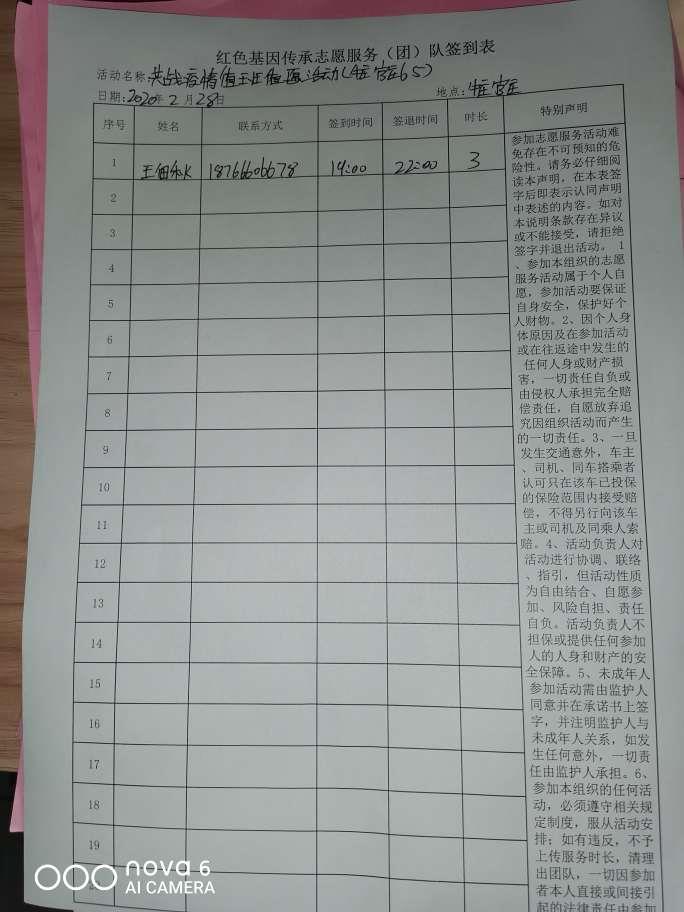 红色基因传承志愿服务（团）队签到表
活动名称：共战疫情值班值
日期：2020年2月28日
地点：
序号 姓名 联系方式 签到时间 签退时间 时长 特别声明
1 王 18766606678 19:00 22:00 3
2
3
4
5
6
7
8
9
10
11
12
13
14
15
16
17
18
19
参加志愿服务活动难
免存在不可预知的危
险性。请务必仔细阅
读本声明，在本表签
字后即表示认同声明
中表述的内容。如对
本说明条款存在异议
或不能接受，请拒绝
签字并退出活动。 1
、参加本组织的志愿
服务活动属于个人自
愿，参加活动要保证
自身安全，保护好个
人财物。2、因个人身
体原因及在参加活动
或在往返途中发生的
任何人身或财产损
害，一切责任自负或
由侵权人承担完全赔
偿责任，自愿放弃追
究因组织活动而产生
的一切责任。3、一旦
发生交通意外，车主
、司机、同车搭乘者
认可只在该车已投保
的保险范围内接受赔
偿，不得另行向该车
主或司机及同乘人索
赔。4、活动负责人对
活动进行协调、联络
、指引，但活动性质
为自由结合、自愿参
加、风险自担、责任
自负。活动负责人不
担保或提供任何参加
人的人身和财产的安
全保障。5、未成年人
参加活动需由监护人
同意并在承诺书上签
字，并注明监护人与
未成年人关系，如发
生任何意外，一切责
任由监护人承担。6、
参加本组织的任何活
动，必须遵守相关规
定制度，服从活动安
排；如有违反，不予
上传服务时长，清理
出团队，一切因参加
者本人直接或间接引
起的法律责任由参加
nova 6
AI CAMERA